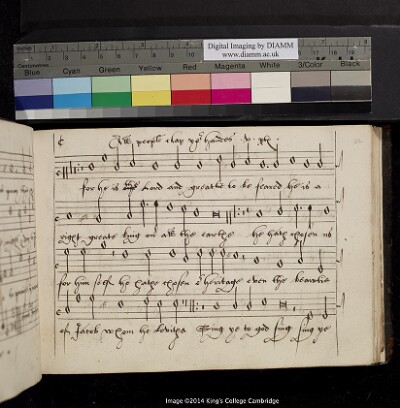 Digital Imaging by DIAMM
www.diamm.ac.uk
Centimetres
Blue Cyan Green Yellow Red Magenta White 3/Color Black
All people clap yor handes
for he is Lord and greate to be feared he is a
right greate king on all the earthe he hath chosen us
for him selfe he hathe chosen heritage even the beawtie
of Jacob whom he lovithe Sing ye to god sing sing ye
Image ©2014 King's College Cambridge